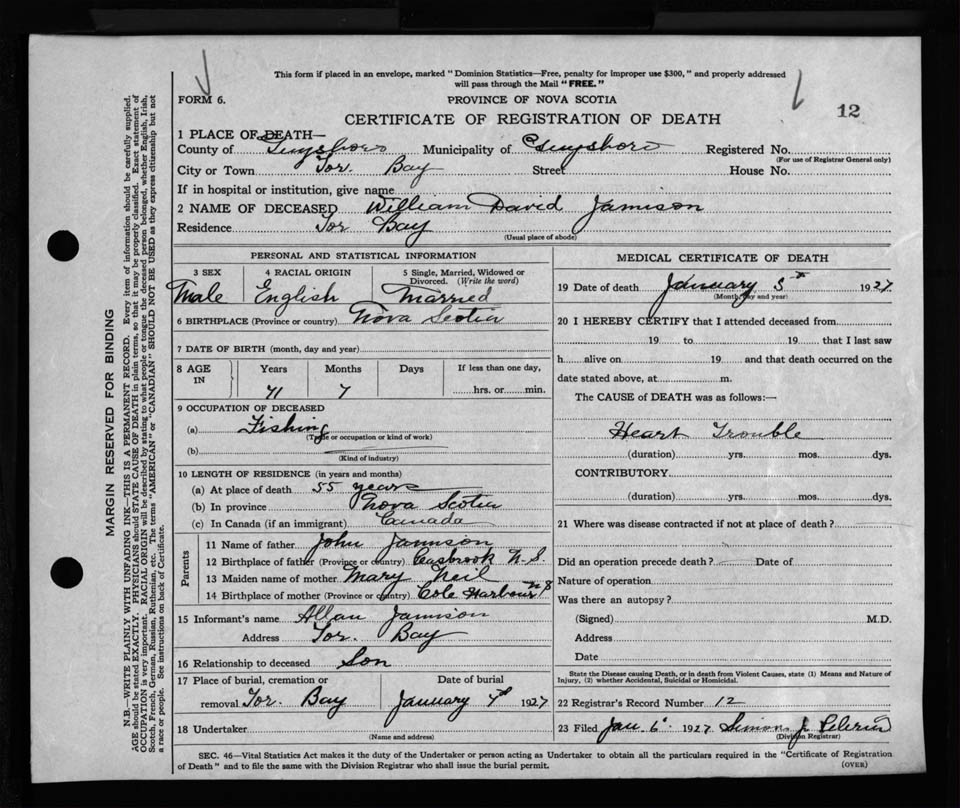 This form if placed in an envelope, marked "Dominion Statistics—Free, penalty for improper use $300," and properly addressed
will pass through the Mail "FREE."
FORM 6.
PROVINCE OF NOVA SCOTIA
12
CERTIFICATE OF REGISTRATION OF DEATH
1 PLACE OF DEATH—
County of Guysboro Municipality of Guysboro Registered No.
(For use of Registrar General only)
City or Town Tor. Bay Street House No.
If in hospital or institution, give name
2 NAME OF DECEASED William David Jamison
Residence Tor Bay
(Usual place of abode)
PERSONAL AND STATISTICAL INFORMATION
3 SEX 4 RACIAL ORIGIN 5 Single, Married, Widowed or
Divorced. (Write the word)
Male English Married
6 BIRTHPLACE (Province or country) Nova Scotia
7 DATE OF BIRTH (month, day and year)
8 AGE IN Years Months Days If less than one day,
71 7 hrs. or min.
9 OCCUPATION OF DECEASED
(a) Fishing
(Trade or occupation or kind of work)
(b)
(Kind of industry)
10 LENGTH OF RESIDENCE (in years and months)
(a) At place of death 55 years
(b) In province Nova Scotia
(c) In Canada (if an immigrant) Canada
Parents
11 Name of father John Jamison
12 Birthplace of father (Province or country) N.S.
13 Maiden name of mother Mary Neil
14 Birthplace of mother (Province or country) Cole Harbour N S
15 Informant's name Allan Jamison
Address Tor. Bay
16 Relationship to deceased Son
17 Place of burial, cremation or Date of burial
removal Tor. Bay January 7th 1927
18 Undertaker
(Name and address)
MEDICAL CERTIFICATE OF DEATH
19 Date of death January 5th 1927
(Month, day and year)
20 I HEREBY CERTIFY that I attended deceased from
19 to 19 that I last saw
h alive on 19 and that death occurred on the
date stated above, at m.
The CAUSE of DEATH was as follows:—
Heart Trouble
(duration) yrs. mos. dys.
CONTRIBUTORY.
(duration) yrs. mos. dys.
21 Where was disease contracted if not at place of death?
Did an operation precede death? Date of
Nature of operation
Was there an autopsy?
(Signed) M.D.
Address
Date
State the Disease causing Death, or in death from Violent Causes, state (1) Means and Nature of
Injury, (2) whether Accidental, Suicidal or Homicidal.
22 Registrar's Record Number 12
23 Filed Jan 6 1927 Simon J. Pelerin
(Division Registrar)
SEC. 46—Vital Statistics Act makes it the duty of the Undertaker or person acting as Undertaker to obtain all the particulars required in the "Certificate of Registration
of Death" and to file the same with the Division Registrar who shall issue the burial permit.
(OVER)
MARGIN RESERVED FOR BINDING
N.B.—WRITE PLAINLY WITH UNFADING INK—THIS IS A PERMANENT RECORD. Every item of information should be carefully supplied.
AGE should be stated EXACTLY. PHYSICIANS should STATE CAUSE OF DEATH in plain terms, so that it may be properly classified. Exact statement of
OCCUPATION is very important. RACIAL ORIGIN will be described by stating to what people or tongue the deceased person belonged, whether English, Irish,
Scotch, French, German, Russian, Ruthenian, etc. The terms "AMERICAN" or "CANADIAN" SHOULD NOT BE USED as they express citizenship but not
a race or people. See instructions on back of Certificate.